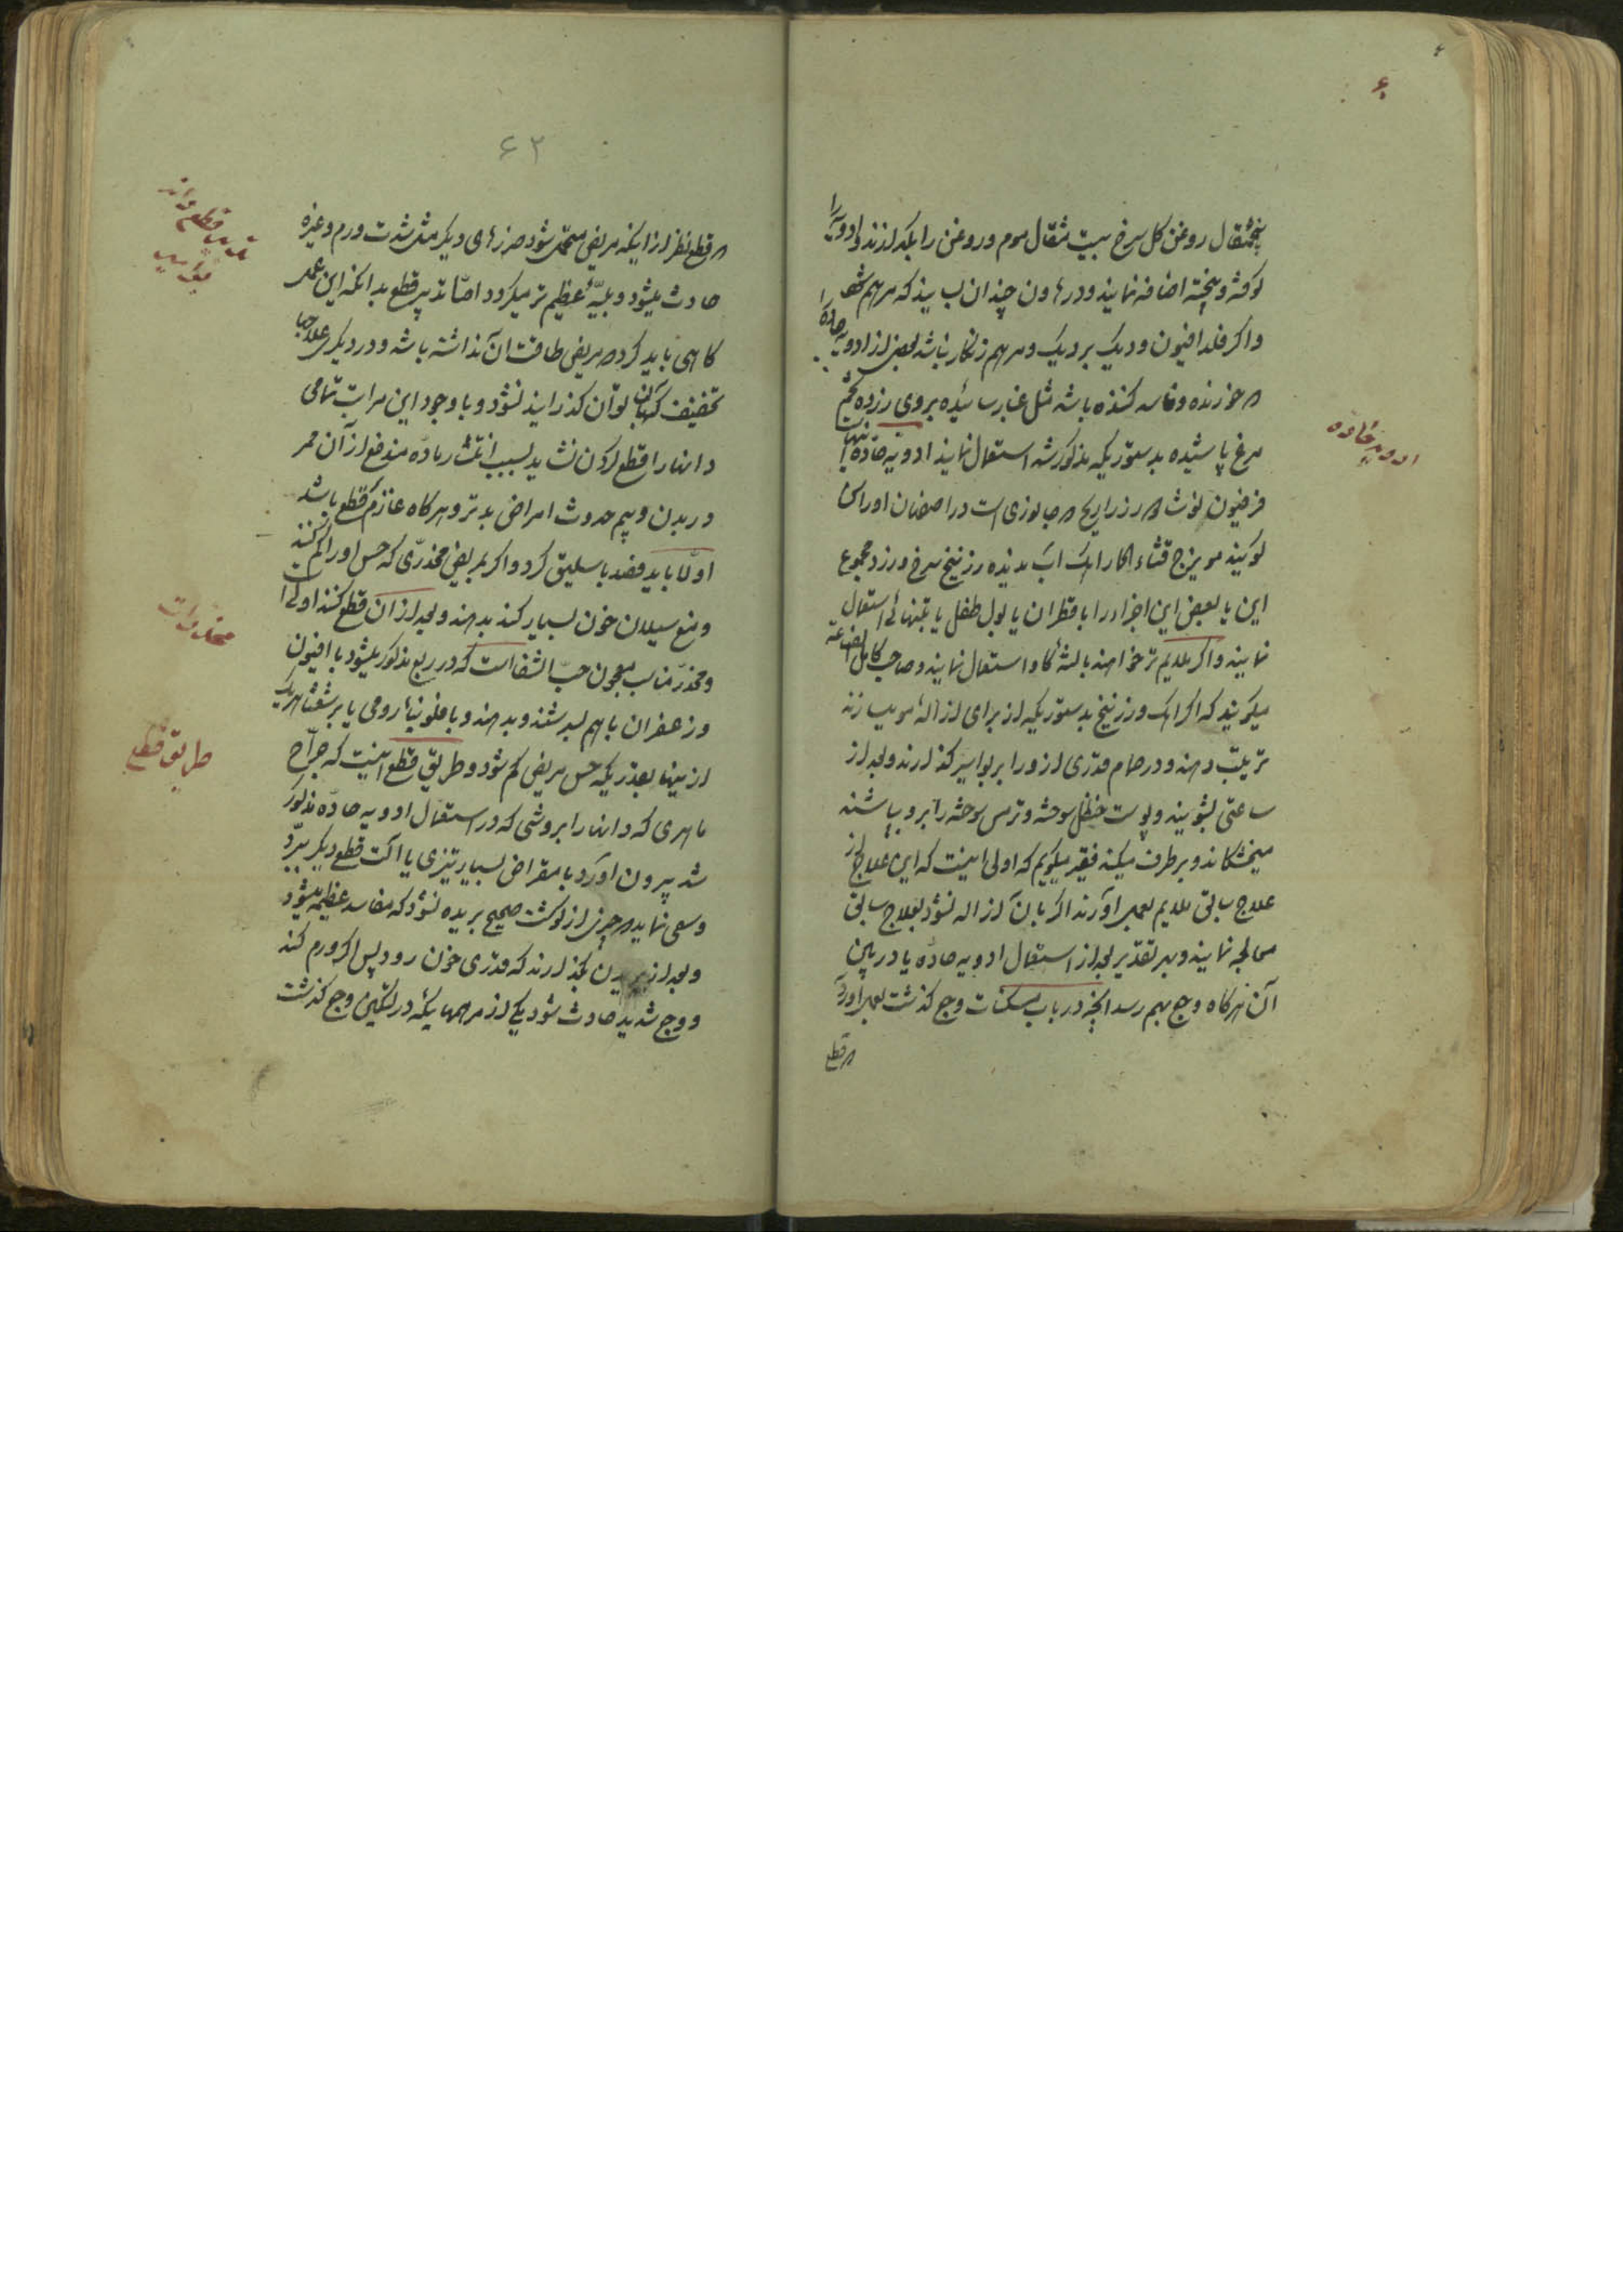 پنجمثقال روغن کل سرخ بیست مثقال موم و روغن را بکدازند و ادویه را
کوفته و بیخته اضافه نمایند و در هاون چندان بسایند که مرهم شود
و اکر فلدافیون و دیک بر دیک و مرهم زنکار نباشد بعضی از ادویه حاده را
که خورنده و فاسد کننده باشد مثل غبار سائیده بروی زرده تخم
مرغ پاشیده بدستوریکه مذکور شد استعمال نمایند ادویه حاده اینهاست
فرفیون که جانوزی است در اصفهان او را
کویند مویزج قثاء الحمار اهک اب ندیده زرنیخ سرخ و زرد مجموع
این یا بعضی این اجزاء را با قطران یا بول طفل یا بتنهائی استعمال
نمایند و اکر ملایم تر خواهند با کاو استعمال نمایند و صاحب کامل الصناعه
میکوید که اکر اهک و زرنیخ بدستوریکه از برای ازاله مو میسازند
ترتیب دهند و در حمام قدری از و را بر بواسیر کذارند و بعد از
ساعتی بشویند و پوست حنظل سوخته و ترمس سوخته را برو پاشند
میخشکاند و بر طرف میکند فقیر میکویم که اولی اینست که این علاج از
علاج سابق ملایم بعمل آورند اکر بان ازاله نشود بعلاج سابق
معالجه نمایند و بهر تقدیر بعد از استعمال ادویه حاده یا در بین
آن هرکاه وجع بهم رسد انچه در باب مسکنات وجع کذشت بعمل اورند
که قطع
ادویه حاده
۶۲
که قطع نظر از اینکه مریض متحمل شود ضررهای دیکر مثل شدت ورم و غیره
حادث میشود و بلیّه عظیم تر میکردد امّا تدبیر قطع بدانکه این عمل
کاهی باید کرد که مریض طاقت ان نداشته باشد و در دیکری علاجها
تخفیف که بان توان کذرانید نشود و با وجود این مراتب تمامی
دانها را قطع کردن نشاید بسبب ماده مندفع از آن ممر
در بدن و بیم حدوث امراض بدتر و هرکاه عازم قطع باشد
اوّلا باید فصد باسلیق کرد و اکر بمریض مخدّری که حس او را کم کند
و منع سیلان خون بسیار کند بدهند و بعد از ان قطع کنند اولی است
و مخدّر مناسب معجون حبّ الشفاست که در ربع مذکور میشود با افیون
و زعفران باهم بسرشند و بدهند و یا فلونیاء رومی یا برشعثا هریک
از بینها بقدریکه حس مریض کم شود و طریق قطع اینست که جرّاح
ماهری که دانها را بروشی که در استعمال ادویه حادّه مذکور
شد بیرون اورد با مقراض بسیار تیزی یا الت قطع دیکر ببرّد
و سعی نماید که چیزی از کوشت صحیح بریده نشود که مفاسد عظیمه میشود
و بعد از بریدن بکذارند که قدری خون رود پس اکر ورم کند
و وجع شدید حادث شود یکی از مرهمهائیکه در تسکین وجع کذشت
تدبیر قطع دانه
بواسیر
مخدرات
طریق قطع